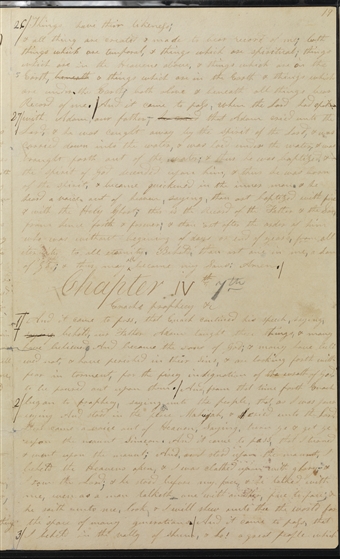 19
26/ Things have their likeness;
& all things are created & made to bear record of me; both
things which are temporal, & things which are spiritual; things
which are in the heavens above, & things which are on the
Earth, & things which are in the Earth & things which
are under the Earth, both above & beneath all things bear
Record of me. / And it came to pass, when the Lord had spoken
27/ with Adam our father, that Adam cried unto the
Lord, & he was caught away by the spirit of the Lord, & was
carried down into the water, & was laid under the water, & was
brought forth out of the water; & thus he was baptized, &
the spirit of God descended upon him, & thus he was born
of the spirit, & became quickened in the inner man. & he
heard a voice out of heaven, saying, thou art baptized with fire
& with the Holy Ghost; this is the record of the Father & the Son,
from hence forth & forever; & thou art after the order of him
who was without beginning of days or end of years, from all
eternity to all eternity. Behold, thou art one in me, a son
of God; & thus may all become my sons Amen. /
Chapter IV
Enoch's prophecy &c
1/ And it came to pass, that Enoch continued his speech, saying,
behold, our father Adam taught these things, & many
have believed And became the sons of God; & many have believed
not, & have perished in their sins, & are looking forth with
fear in torment, for the fiery indignation of the wrath of God
to be poured out upon them. / And from that time forth Enoch
2/ began to prophecy, saying unto the people, that as I was journeying
And stood in the place & cried unto the Lord
And came a voice out of Heaven, saying, turn ye & get ye
upon the mount Simeon. And it came to pass, that I turned
& went upon the mount; And, as I stood upon the mount, I
beheld the heavens open, & I was clothed upon with glory &
I saw the Lord; & he stood before my face, & he talked with
me, even as a man talketh one with another, face to face; &
he saith unto me, look, & I will shew unto thee the world for
the space of many generations. And it came to pass, that
3/ I beheld in the valley of Shum, & lo! a great people which